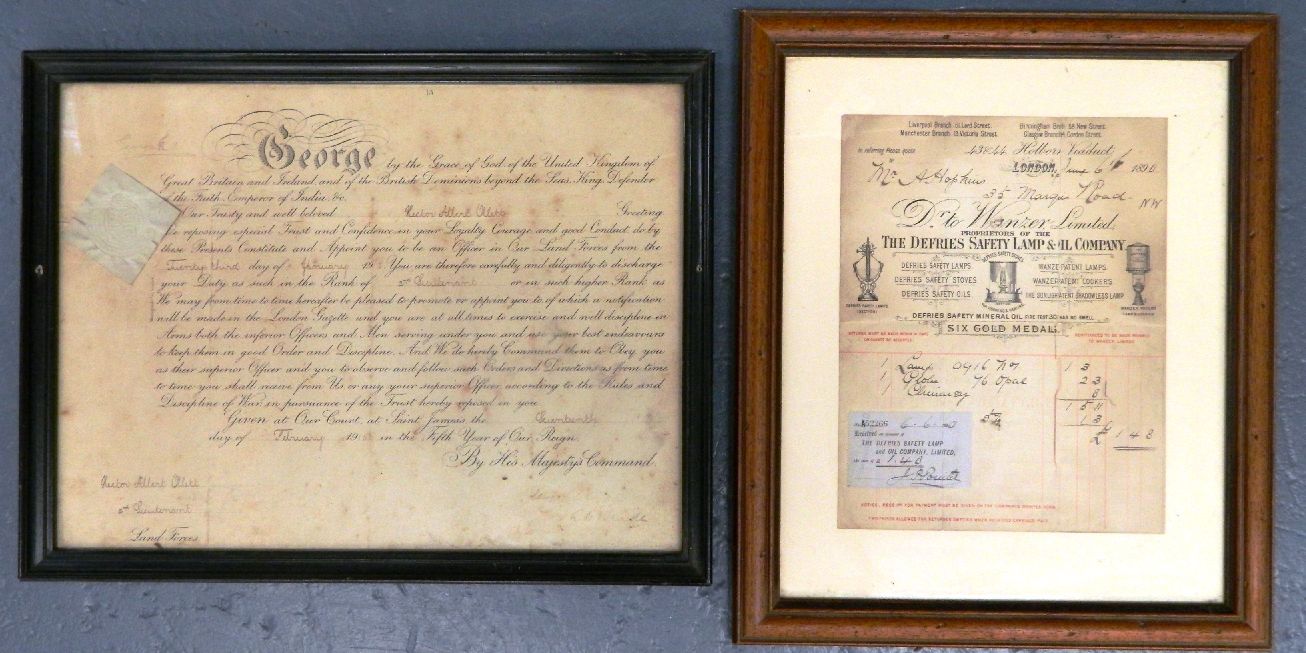 George by the Grace of God of the United Kingdom of
Great Britain and Ireland and of the British Dominions beyond the Seas, King, Defender
of the Faith, Emperor of India, &c.
Our Trusty and well beloved Hector Albert Greeting
We reposing especial Trust and Confidence in your Loyalty Courage and good Conduct do by
these Presents Constitute and Appoint you to be an Officer in Our Land Forces from the
Twenty third day of February 19 You are therefore carefully and diligently to discharge
your Duty as such in the Rank of 2nd Lieutenant or in such higher Rank as
We may from time to time hereafter be pleased to promote or appoint you to of which a notification
will be made in the London Gazette and you are at all times to exercise and well discipline in
Arms both the inferior Officers and Men serving under you and use your best endeavours
to keep them in good Order and Discipline. And We do hereby Command them to Obey you
as their superior Officer and you to observe and follow such Orders and Directions as from time
to time you shall receive from Us or any your superior Officer according to the Rules and
Discipline of War in pursuance of the Trust hereby reposed in you
Given at Our Court at Saint James's the
day of February 19 in the Fifth Year of Our Reign
By His Majesty's Command
Hector Albert
2nd Lieutenant
Land Forces
Liverpool Branch Lord Street.
Manchester Branch Victoria Street.
Birmingham 58 New Street.
Glasgow Branch Gordon Street.
In referring Please quote
43 & 44 Holborn Viaduct
LONDON, June 6 1890
Mr A Hopkins
35 Road NW
Dr to Wanzer Limited.
PROPRIETORS OF THE
THE DEFRIES SAFETY LAMP & OIL COMPANY
DEFRIES SAFETY LAMPS
DEFRIES SAFETY STOVES
DEFRIES SAFETY OILS
WANZER PATENT LAMPS
WANZER PATENT COOKERS
THE SUNLIGHT PATENT SHADOWLESS LAMP
DEFRIES SAFETY MINERAL OIL FIRE TEST HAS NO SMELL
SIX GOLD MEDALS.
1 Lamp No 1 3
1 Globe Opal 2 3
Chimney 8
1 5 11
1 3
£ 1 4 8
No. A52266 6.6.90
Received
THE DEFRIES SAFETY LAMP
and OIL COMPANY, LIMITED,
£ 1.4.8